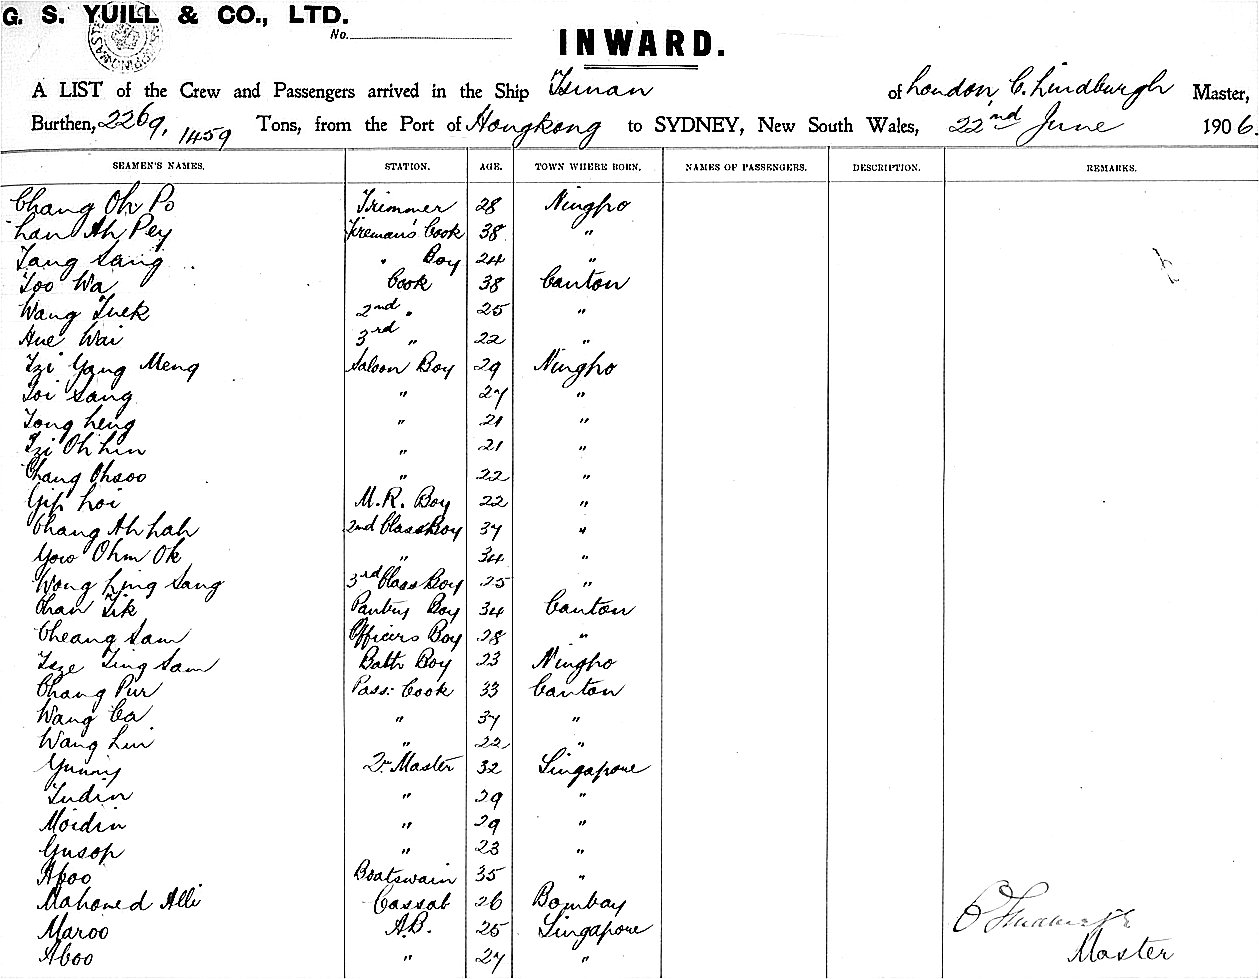 G. S. YUILL & CO., LTD.
No.
INWARD.
A LIST of the Crew and Passengers arrived in the Ship Tsinan of London, C. Lindbergh Master,
Burthen, 2269, 1459 Tons, from the Port of Hongkong to SYDNEY, New South Wales, 22nd June 1906.
SEAMEN'S NAMES. STATION. AGE. TOWN WHERE BORN. NAMES OF PASSENGERS. DESCRIPTION. REMARKS.
Chang Oh Po Trimmer 28 Ningpo
han Ah Pey Fireman's Cook 38 "
Tang Sang " Boy 24 "
Too Wa Cook 38 Canton
Wang Tuek 2nd " 25 "
Hue Wai 3rd " 22 "
Tzi Yang Meng Saloon Boy 29 Ningpo
Toi Sang " 27 "
Tong heng " 21 "
Tzi Oh hin " 21 "
Chang Ohsoo " 22 "
Yip hoi M.R. Boy 22 "
Chang Ah hah 2nd Class Boy 37 "
Yow Ohm Ok " 34 "
Wong Ling Sang 3rd Class Boy 25 "
Chan Tik Pantry Boy 34 Canton
Cheang Sam Officers Boy 28 "
Tsze Ting Sam Bath Boy 23 Ningpo
Chang Pur Pass: Cook 33 Canton
Wang Ca " 37 "
Wang Lin " 22 "
Yunny Qr. Master 32 Singapore
Tudin " 29 "
Moidin " 29 "
Gusop " 23 "
Apoo Boatswain 35 "
Mahomed Alli Cassab 26 Bombay
Maroo A.B. 25 Singapore
Aboo " 27 "
C Lindbergh
Master